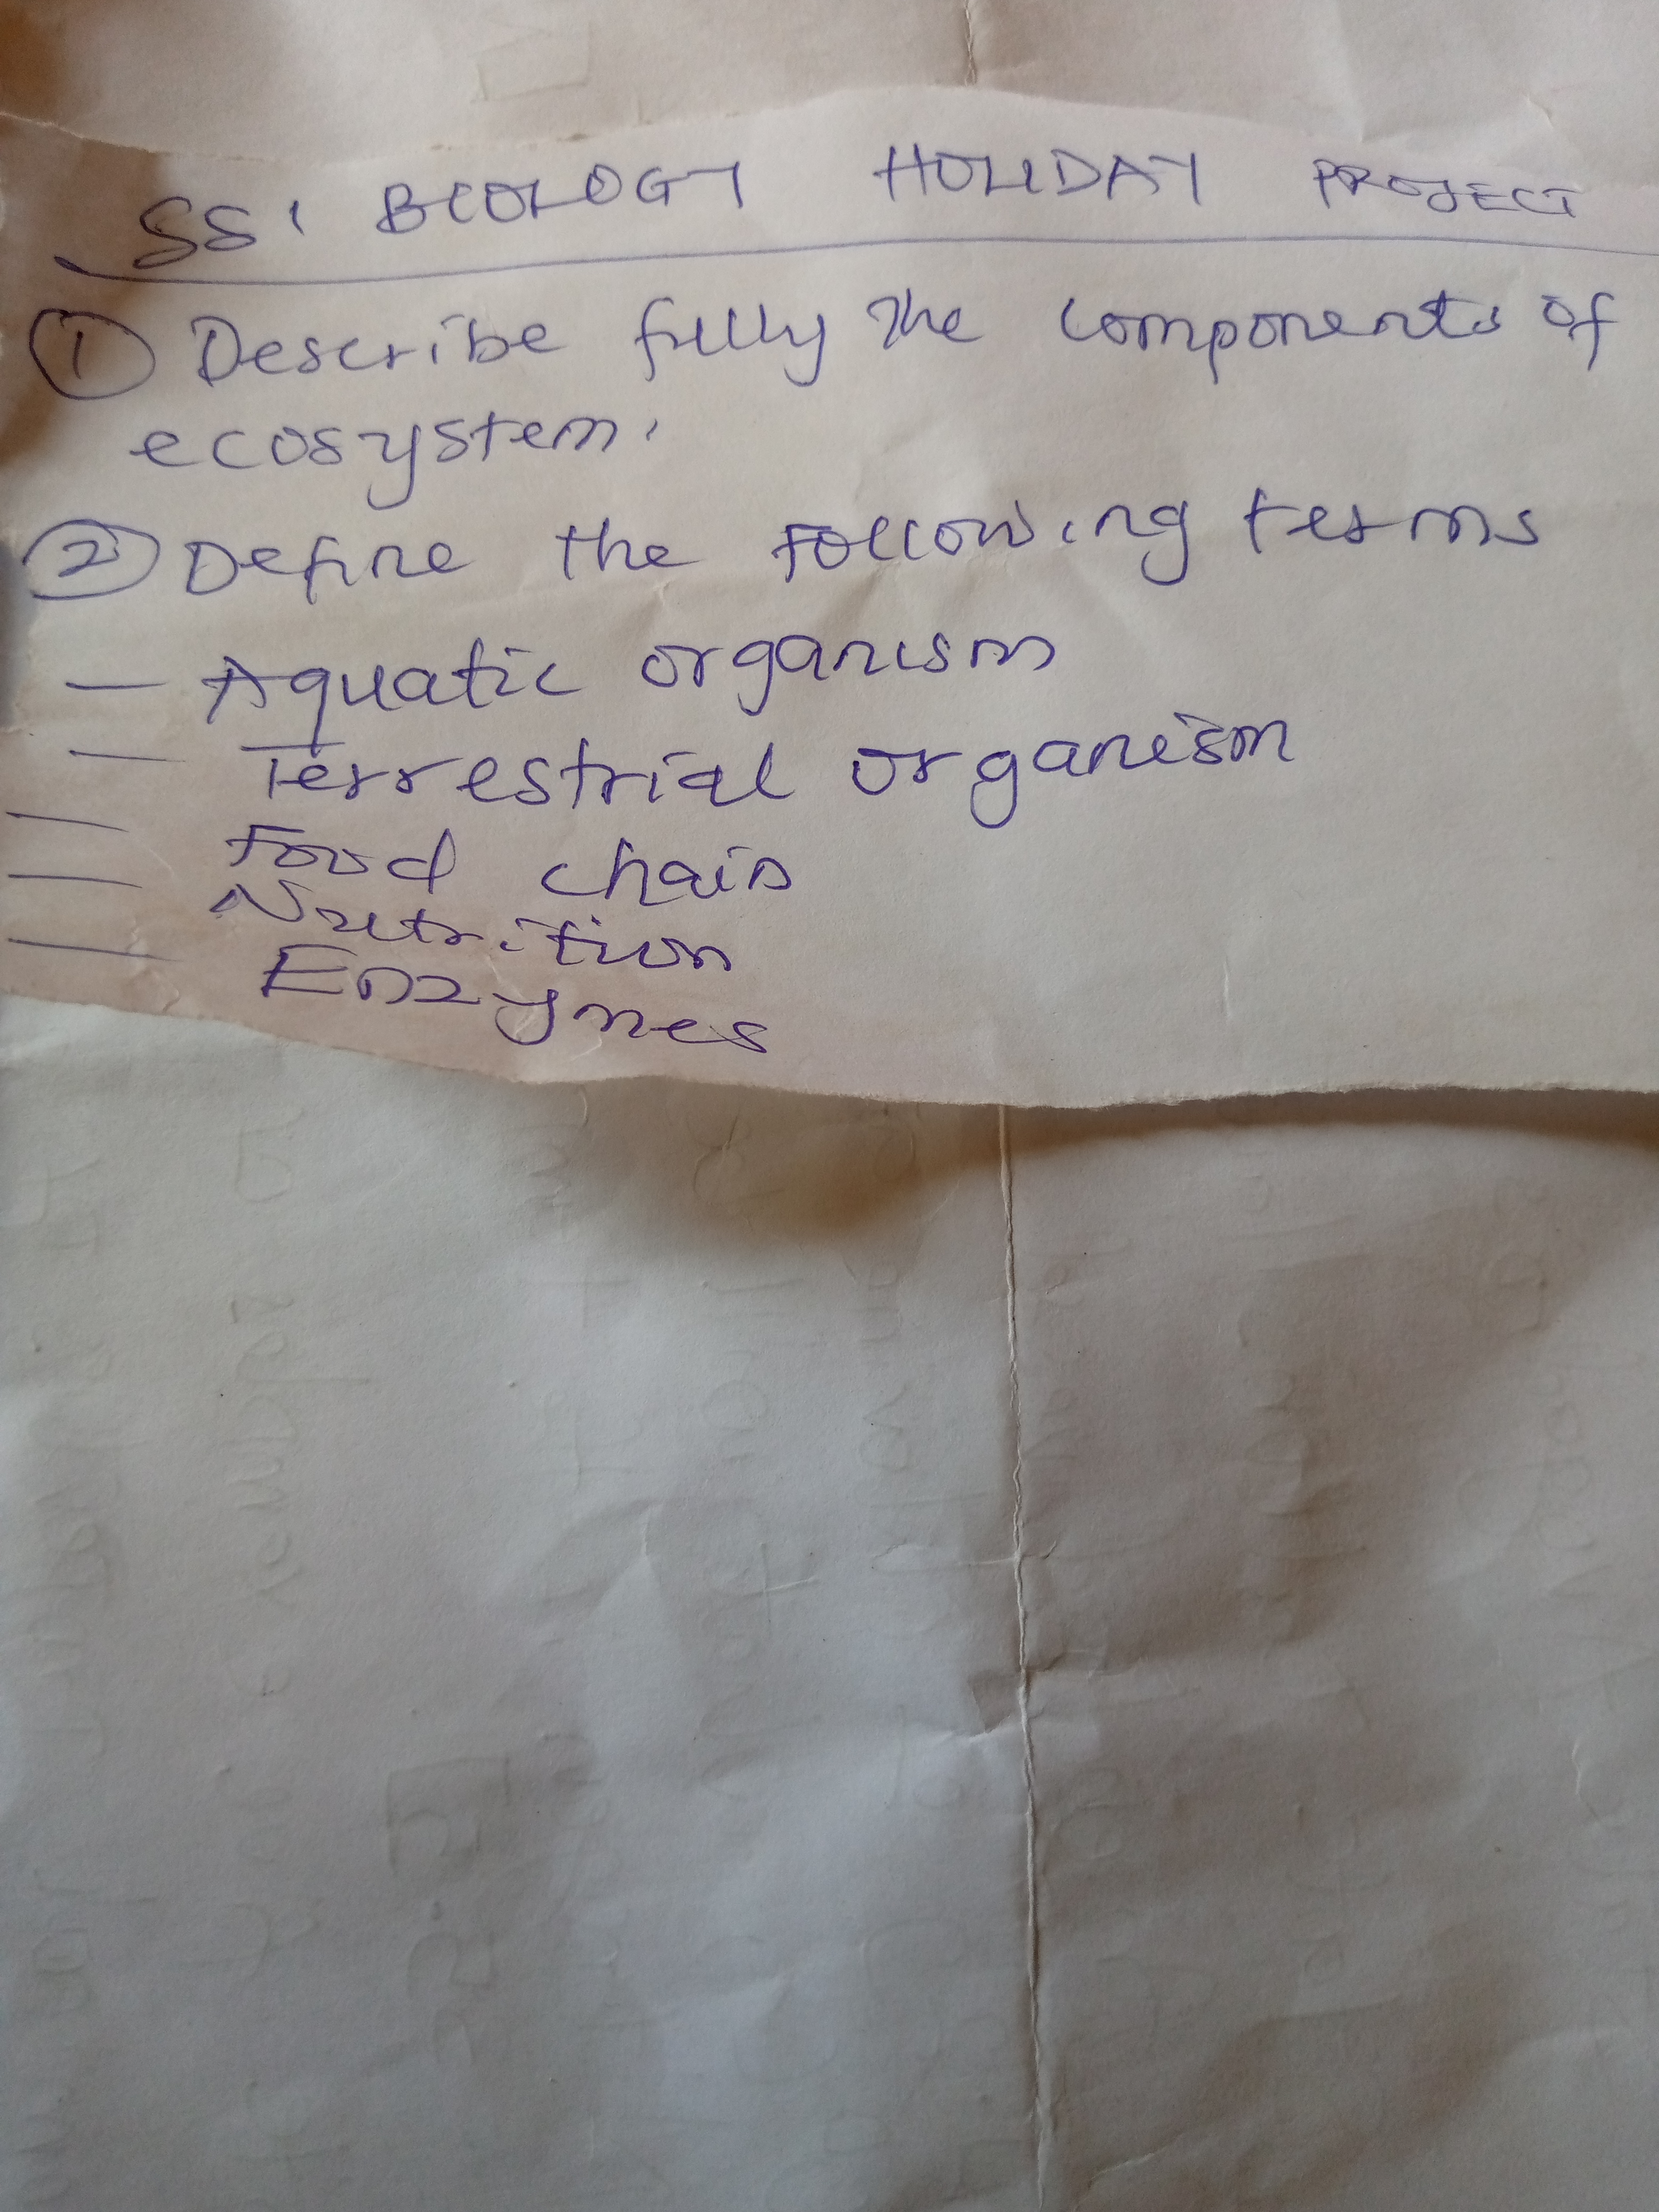 SS1 BIOLOGY HOLIDAY PROJECT
① Describe fully the components of
ecosystem.
② Define the following terms
— Aquatic organism
— Terrestrial organism
— Food chain
— Nutrition
— Enzymes